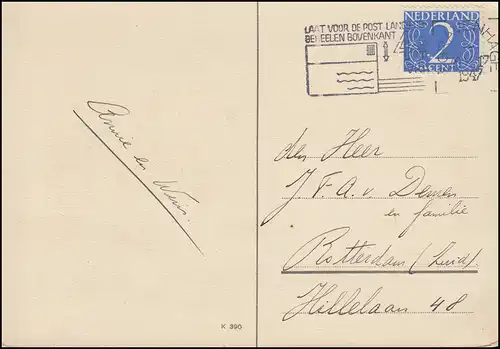 LAAT VOOR DE POST LANGS
GEHEELEN BOVENKANT
NEDERLAND
2
CENT
HAGE
1947
Annie en Wim.
den Heer
J. F. A. v. Demen
en familie
Rotterdam (Zuid)
Hillelaan 48
K 390